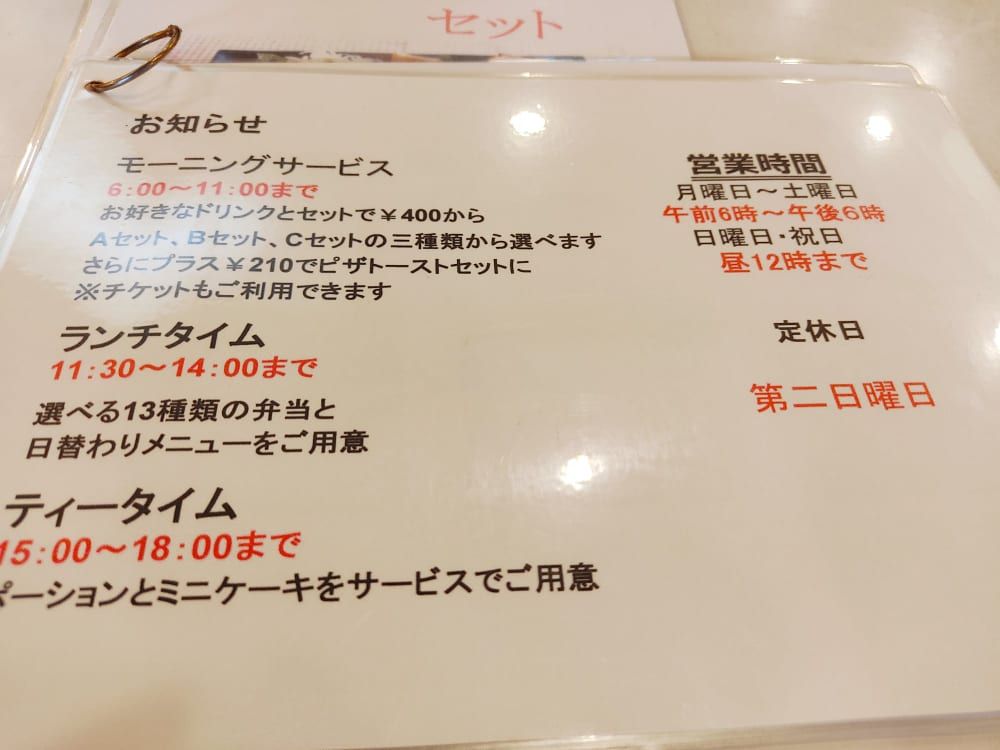 セット
お知らせ
モーニングサービス
6:00～11:00まで
お好きなドリンクとセットで￥400から
Aセット、Bセット、Cセットの三種類から選べます
さらにプラス￥210でピザトーストセットに
※チケットもご利用できます
ランチタイム
11:30～14:00まで
選べる13種類の弁当と
日替わりメニューをご用意
ティータイム
15:00～18:00まで
ポーションとミニケーキをサービスでご用意
営業時間
月曜日～土曜日
午前6時～午後6時
日曜日・祝日
昼12時まで
定休日
第二日曜日